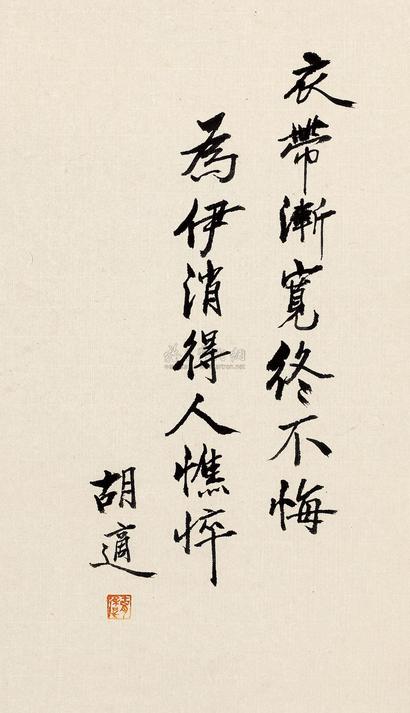 衣帶漸寬終不悔
為伊消得人憔悴
胡適